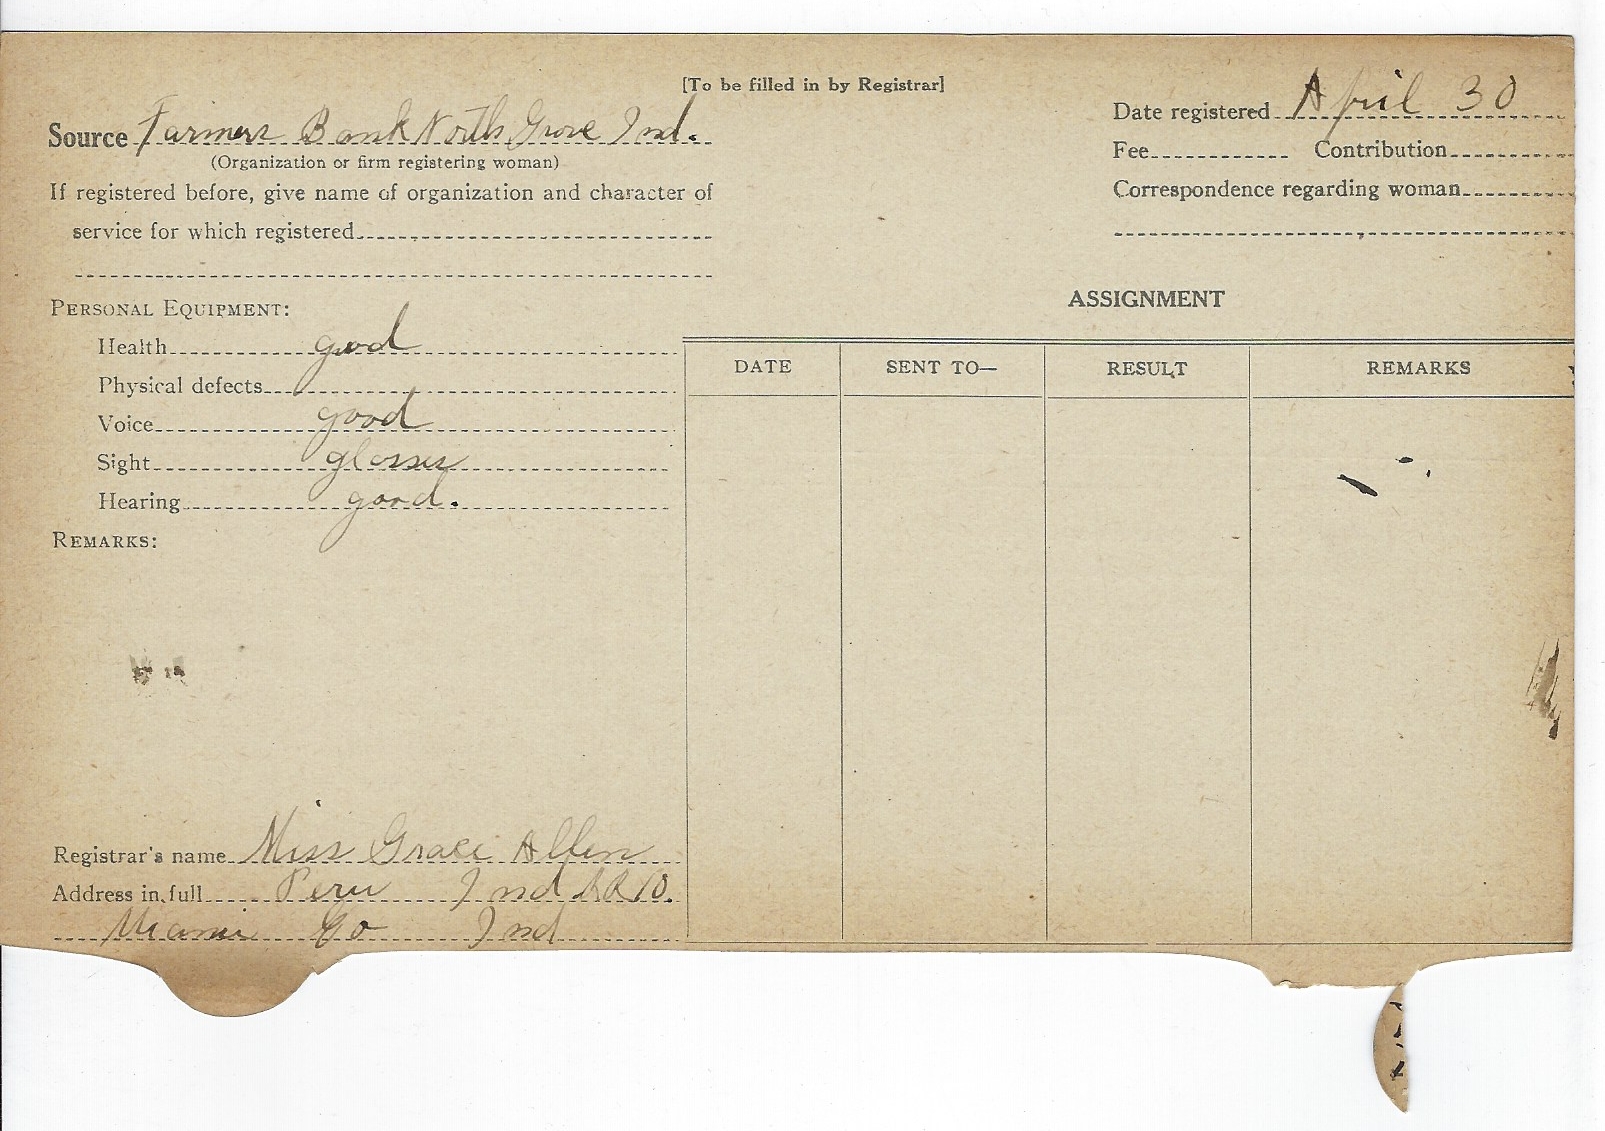 [To be filled in by Registrar]
Source Farmers Bank North Grove Ind.
(Organization or firm registering woman)
If registered before, give name of organization and character of
service for which registered
Date registered April 30
Fee Contribution
Correspondence regarding woman
PERSONAL EQUIPMENT:
Health good
Physical defects
Voice good
Sight glasses
Hearing good.
REMARKS:
Registrar's name Miss Grace Allen
Address in full Peru Ind RR 10.
Miami Co Ind
ASSIGNMENT
DATE SENT TO— RESULT REMARKS